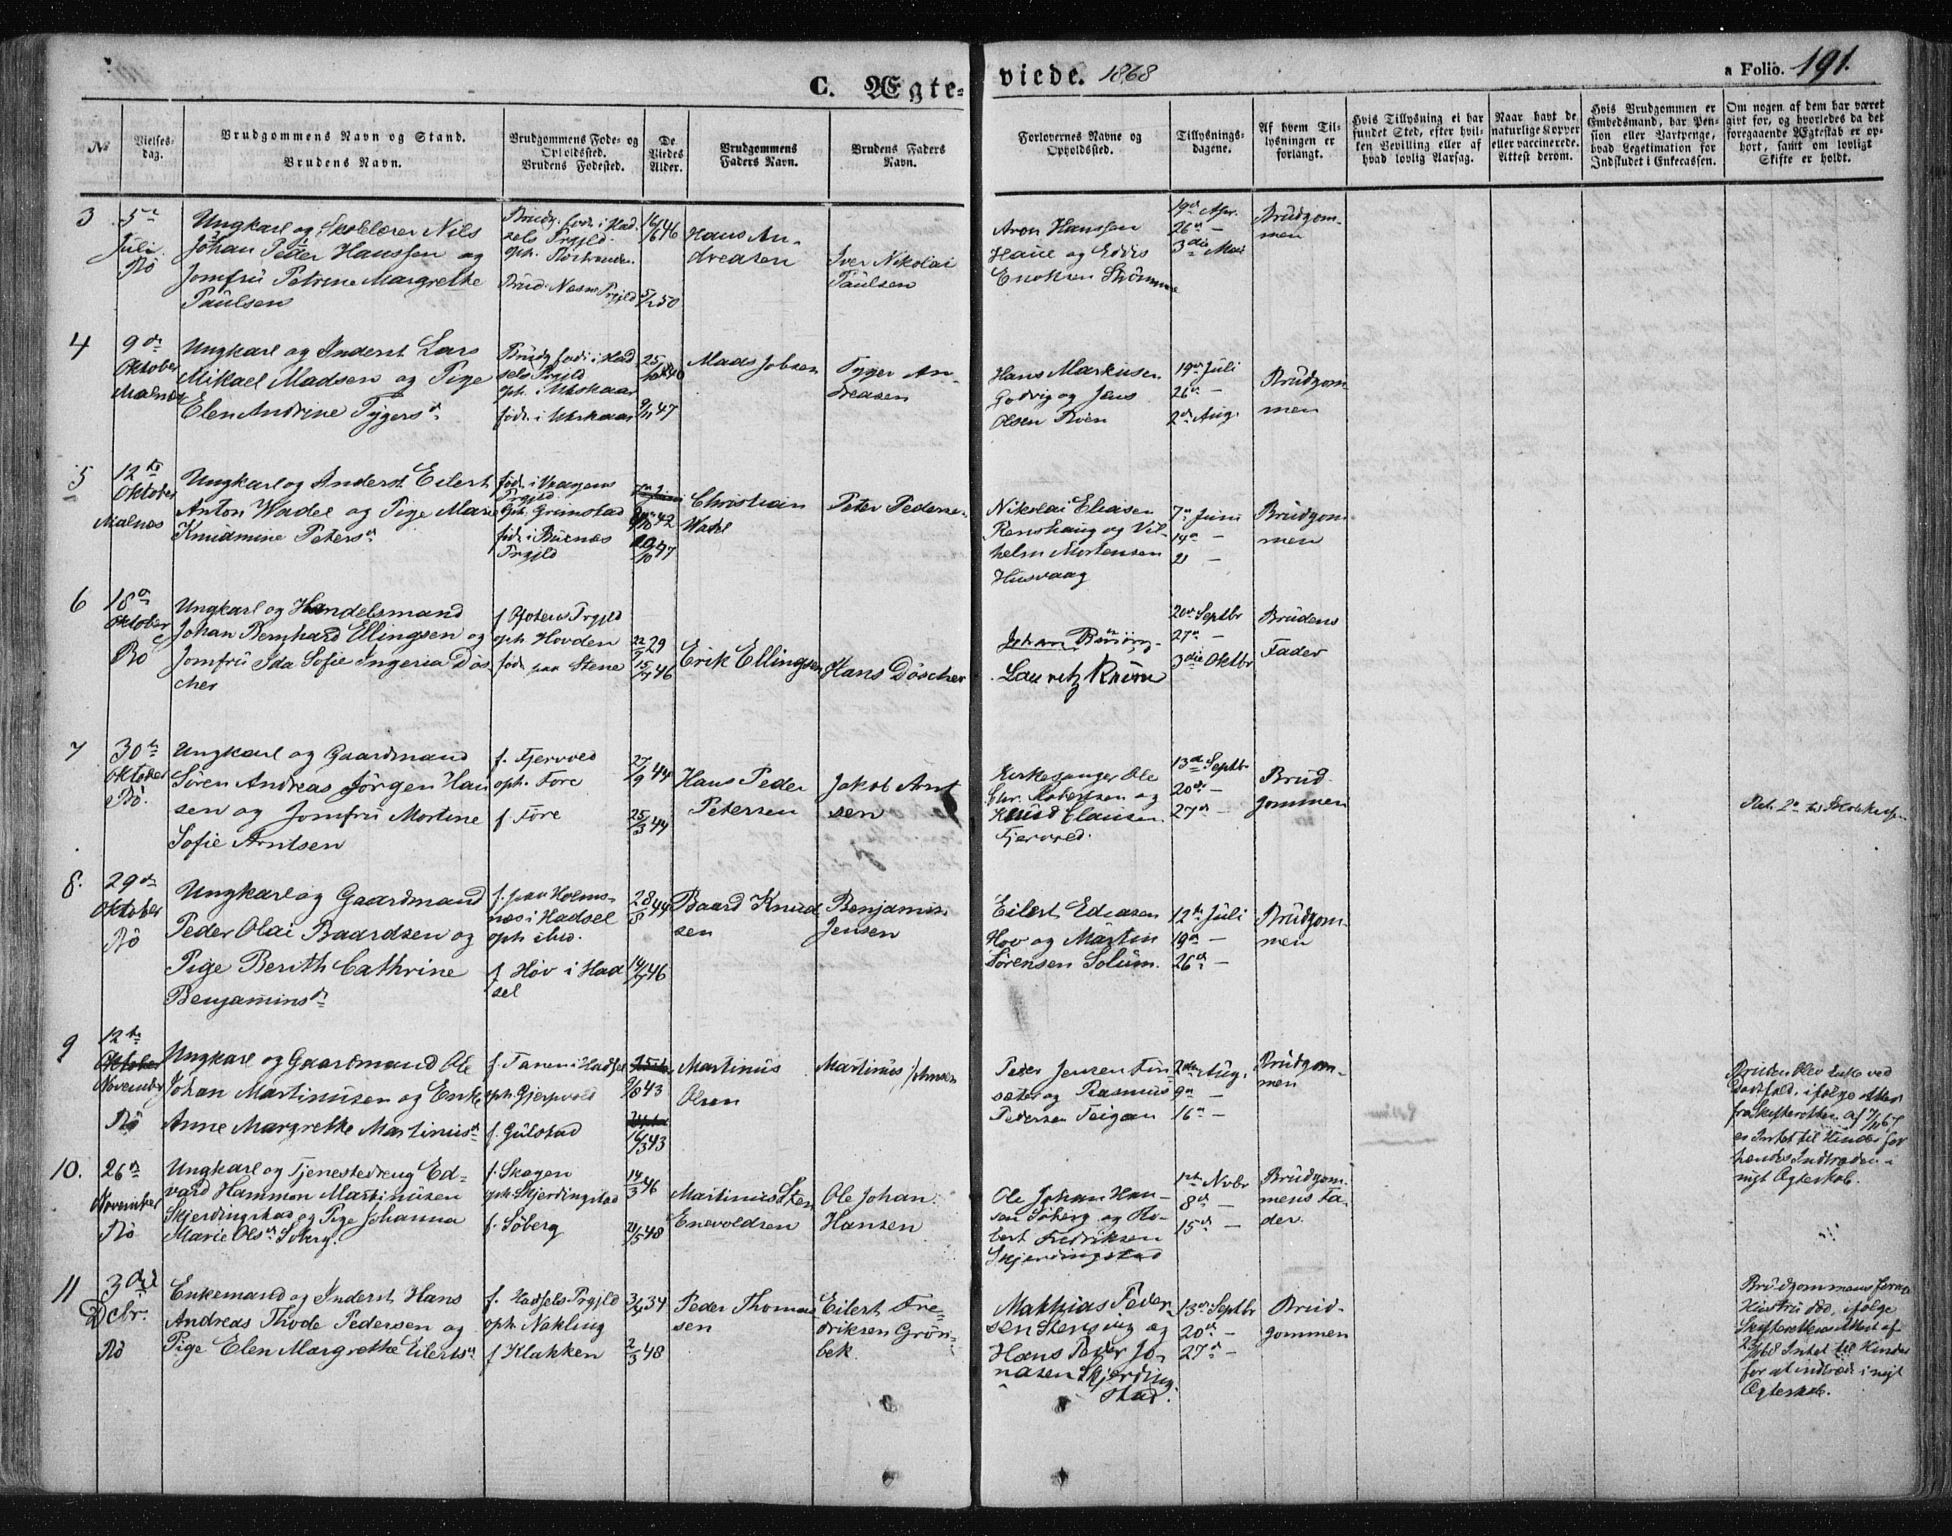 C. Ægte-
viede. 1868
a Folio. 191.
No
Vielses-
dag.
Brudgommens Navn og Stand.
Brudens Navn.
Brudgommens Føde- og
Opholdssted.
Brudens Fødested.
De
Viedes
Alder.
Brudgommens
Faders Navn.
Brudens Faders
Navn.
Forlovernes Navne og
Opholdssted.
Tillysnings-
dagene.
Af hvem Til-
lysningen er
forlangt.
Hvis Tillysning ei har
fundet Sted, efter hvil-
ken Bevilling eller af
hvad lovlig Aarsag.
Naar havt de
naturlige Kopper
eller vaccinerede.
Attest derom.
Hvis Brudgommen er
Embedsmand, har Pen-
sion eller Vartpenge,
hvad Legetimation for
Indskudet i Enkecassen.
Om nogen af dem har været
gift før, og hvorledes da det
foregaaende Ægteskab er op-
hørt, samt om lovligt
Skifte er holdt.
3
5te
Juli
Bö
Ungkarl og Skolelærer Nils
Johan Peder Hanssen og
Jomfru Petrine Margrethe
Paulsen
Brudg. föd. i Had
sels Prgjld.
oph.
Brud. Næsne Prgjld
16/6 46
5/2 50
Hans An-
dreasen
Iver Nikolai
Paulsen
Aron Hanssen
Haue og
Enoksen Strömme
19de Apr.
26de —
3die Mai
Brudgom-
men
4
9de
Oktober
Malnæs
Ungkarl og Inderst Lars
Mikael Madsen og Pige
Elen Andrine Tygersdr
Brudg. föd. i Had
sels Prgjld
oph. i Utskaar
föd. i Utskaar
25/10 40
9/11 47
Mads Jobsen
Tyger An-
dreasen
Hans Markusen
Godvig og Jens
Olsen Röen
19de Juli
26de —
2den Aug.
Brudgom
men
5
12te
Oktober
Malnæs
Ungkarl og Inderst Eilert
Anton Wadel og Pige Maren
Knudmine Petersdr
föd. i Vaagens
Prgjld.
Oph. Grimstad
föd. i Buxnæs
Prgjld
42
47
Christian
Wadel
Peter Pederse
Nikolai Eliasen
Renshaug og Vil-
helm Mortensen
Husvaag
7de Juni
14de —
21 —
Brudgom
men
6
18de
Oktober
Bö
Ungkarl og Handelsmand
Johan Bernhard Ellingsen og
Jomfru Ida Sofie Ingeria Dös
cher
f. Ofotens Prgjld
oph. Hovden
föd. paa Stene
29
15/7 46
Erik Ellingsen
Hans Döscher
Johan
Lauritz
20de Septbr
27de —
3die Oktbr
Brudens
Fader
7
30te
Oktober
Bö.
Ungkarl og Gaardmand
Sören Andreas Jörgen Han
sen og Jomfru Mortine
Sofie Arntsen
f. Fjervold
oph. Före
f. Före
27/9 44
25/3 44
Hans Peder
Petersen
Jakob Arnt
sen
Kirkesanger Ole
Chr. Robertsen og
Knud Clausen
Fjervold.
13de Septbr
20de —
27de —
Brud-
gommen
8.
29de
Oktober
Bö
Ungkarl og Gaardmand
Peder Olai Baardsen og
Pige Berith Cathrine
Benjaminsdr
f. paa Holms-
næs i Hadsel
oph. ibid.
f. Höv i Had
sel
28/8 44
14/7 46
Baard Knud
sen
Benjamin
Jensen
Eilert Ediasen
Hov og Martin
Sörensen Solum.
12te Juli
19de —
26de —
Brudgom-
men
9
12te
Oktober
November
Bö
Ungkarl og Gaardmand Ole
Johan Martinusen og Enke
Anne Margrethe Martinusdr
f. Tanem i Hadsel
oph. Gjerpvold
f. Gulstad
43
43
Martinus
Olsen
Martinus Johnsen
Peter Jensen Fin
sæter og Rasmus
Pedersen Teigan
2den Aug.
9de —
16de —
Brudgom-
men
Bruden blev Enke ved
Dödsfald, ifölge Attest
fra Skifteretten af
er Intet til Hinder for
hendes Indtræden i
nyt Ægteskab.
10.
26de
November
Bö
Ungkarl og Tjenestedreng Ed-
vard Hammon Martinusen
Skjerdingstad og Pige Johanna
Marie Olsdr Söberg.
f. Skagen
oph. Skjerdingstad
f. Söberg
14/3 46
48
Martinus Sten
Enevoldsen
Ole Johan
Hansen
Ole Johan Han-
sen Söberg og Ro-
bert Fredriksen
Skjerdingstad
1ste Nvbr
8de —
15de —
Brudgom-
mens Fa-
der.
11
3die
Dcbr.
Bö
Enkemand og Inderst Hans
Andreas Thode Pedersen og
Pige Elen Margrethe Eilertsdr
f. Hadsels Prgjld
oph. Nykling
f. Klakken
34
2/3 48
Peder Thomas
sen
Eilert Fre-
driksen Grön-
bek.
Mathias Peder-
sen Steng og
Hans Peder Jo-
nasen Skjerding-
stad.
13de Septbr
20de —
27de —
Brud-
gommen
Brudgommens forrige
Hustru död, ifölge
Skifterettens Attest af
Intet til Hinder
for at indtræde i nyt
Ægteskab.